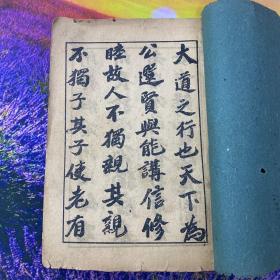 大道之行也天下為
公選賢與能講信修
睦故人不獨親其親
不獨子其子使老有